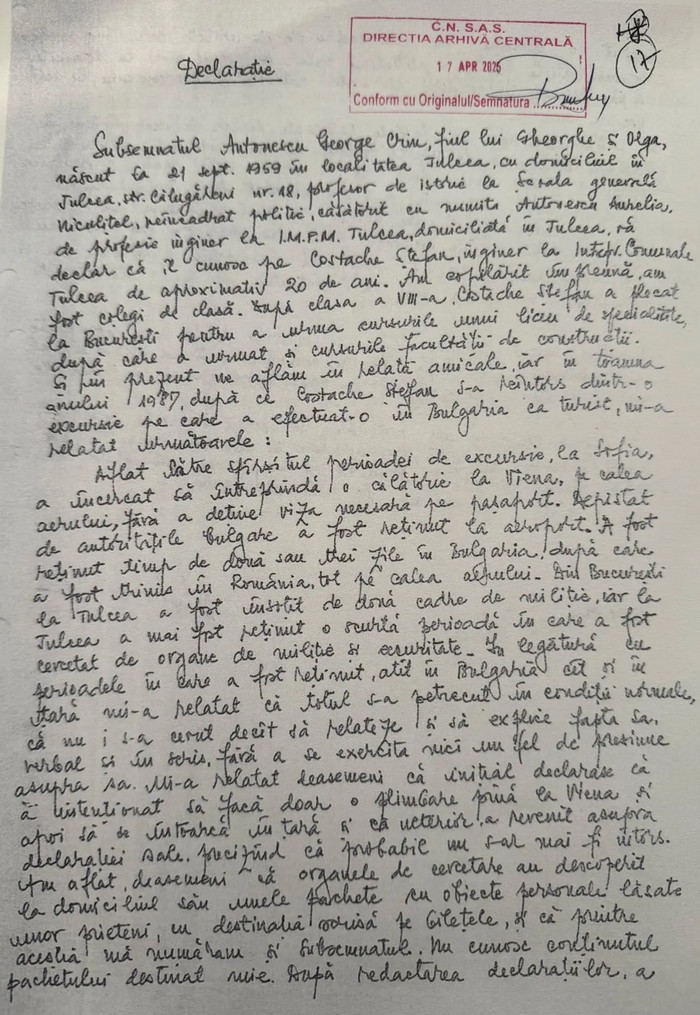 C.N. S.A.S.
DIRECTIA ARHIVĂ CENTRALĂ
17 APR 2025
Conform cu Originalul/Semnatura
17
Declarație
Subsemnatul Antonescu George Crin, fiul lui Gheorghe și Olga,
născut la 21 sept. 1959 în localitatea Tulcea, cu domiciliul în
Tulcea, str. Călugăreni nr. 18, profesor de istorie la Școala generală
Niculițel, neîncadrat politic, căsătorit cu numita Antonescu Aurelia,
de profesie inginer la I.M.P.M. Tulcea, domiciliată în Tulcea, vă
declar că îl cunosc pe Costache Ștefan, inginer la Intrepr. Comunale
Tulcea de aproximativ 20 de ani. Am copilărit împreună, am
fost colegi de clasă. După clasa a VIII-a, Costache Ștefan a plecat
la București pentru a urma cursurile unui liceu de specialitate,
după care a urmat și cursurile facultății de construcții.
Și în prezent ne aflăm în relații amicale, iar în toamna
anului 1987, după ce Costache Ștefan s-a reîntors dintr-o
excursie pe care a efectuat-o în Bulgaria ca turist, mi-a
relatat următoarele:
Aflat către sfîrșitul perioadei de excursie, la Sofia,
a încercat să întreprindă o călătorie la Viena, pe calea
aerului, fără a deține viza necesară pe pașaport. Depistat
de autoritățile bulgare a fost reținut la aeroport. A fost
reținut timp de două sau trei zile în Bulgaria, după care
a fost trimis în România, tot pe calea aerului. Din București
la Tulcea a fost însoțit de două cadre de miliție, iar la
Tulcea a mai fost reținut o scurtă perioadă în care a fost
cercetat de organe de miliție și securitate. În legătură cu
perioadele în care a fost reținut, atît în Bulgaria cît și în
țară mi-a relatat că totul s-a petrecut în condiții normale,
că nu i s-a cerut decît să relateze și să explice fapta sa,
verbal și în scris, fără a se exercita nici un fel de presiune
asupra sa. Mi-a relatat deasemeni că inițial declarase că
a intenționat să facă doar o plimbare pînă la Viena și
apoi să se întoarcă în țară și că ulterior a revenit asupra
declarației sale, precizînd că probabil nu s-ar mai fi întors.
Am aflat, deasemeni că organele de cercetare au descoperit
la domiciliul său unele pachete cu obiecte personale lăsate
unor prieteni, cu destinația scrisă pe bilețele, și că printre
aceștia mă număram și subsemnatul. Nu cunosc conținutul
pachetului destinat mie. După redactarea declarațiilor, a